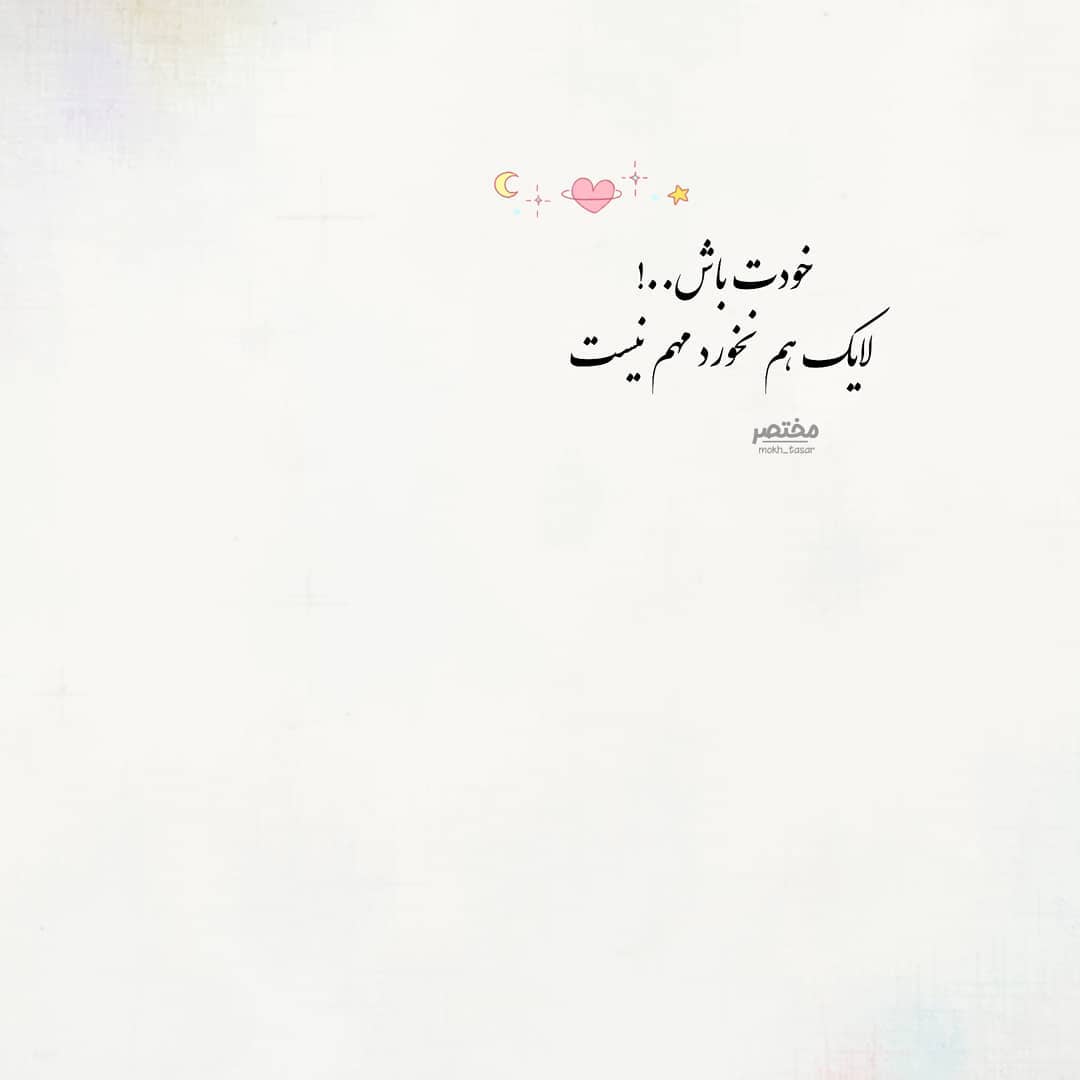 خودت باش..!
لایک هم نخورد مهم نیست
مختصر
mokh_tasar